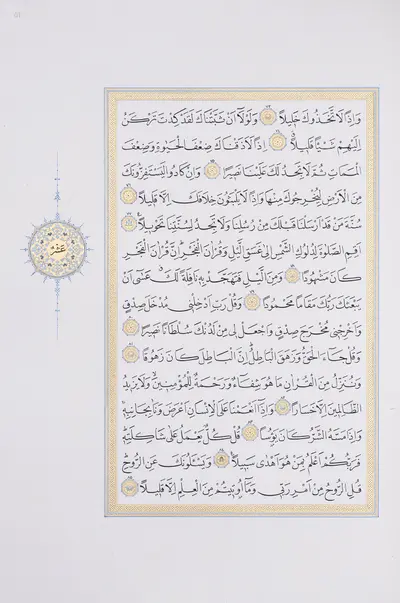 وَاِذًا لَاتَّخَذُوكَ خَلِيلًا وَلَوْلَٓا اَنْ ثَبَّتْنَاكَ لَقَدْ كِدْتَ تَرْكَنُ
اِلَيْهِمْ شَيْـًٔا قَلِيلًا اِذًا لَاَذَقْنَاكَ ضِعْفَ الْحَيٰوةِ وَضِعْفَ
الْمَمَاتِ ثُمَّ لَا تَجِدُ لَكَ عَلَيْنَا نَصِيرًا وَاِنْ كَادُوا لَيَسْتَفِزُّونَكَ
مِنَ الْاَرْضِ لِيُخْرِجُوكَ مِنْهَا وَاِذًا لَا يَلْبَثُونَ خِلَافَكَ اِلَّا قَلِيلًا
سُنَّةَ مَنْ قَدْ اَرْسَلْنَا قَبْلَكَ مِنْ رُسُلِنَا وَلَا تَجِدُ لِسُنَّتِنَا تَحْوِيلًا
اَقِمِ الصَّلٰوةَ لِدُلُوكِ الشَّمْسِ اِلٰى غَسَقِ الَّيْلِ وَقُرْاٰنَ الْفَجْرِ اِنَّ قُرْاٰنَ الْفَجْرِ
كَانَ مَشْهُودًا وَمِنَ الَّيْلِ فَتَهَجَّدْ بِهِ نَافِلَةً لَكَ عَسٰٓى اَنْ
يَبْعَثَكَ رَبُّكَ مَقَامًا مَحْمُودًا وَقُلْ رَبِّ اَدْخِلْنِي مُدْخَلَ صِدْقٍ
وَاَخْرِجْنِي مُخْرَجَ صِدْقٍ وَاجْعَلْ لِي مِنْ لَدُنْكَ سُلْطَانًا نَصِيرًا
وَقُلْ جَٓاءَ الْحَقُّ وَزَهَقَ الْبَاطِلُ اِنَّ الْبَاطِلَ كَانَ زَهُوقًا
وَنُنَزِّلُ مِنَ الْقُرْاٰنِ مَا هُوَ شِفَٓاءٌ وَرَحْمَةٌ لِلْمُؤْمِنِينَ وَلَا يَزِيدُ
الظَّالِمِينَ اِلَّا خَسَارًا وَاِذَٓا اَنْعَمْنَا عَلَى الْاِنْسَانِ اَعْرَضَ وَنَاٰ بِجَانِبِهِ
وَاِذَا مَسَّهُ الشَّرُّ كَانَ يَؤُسًا قُلْ كُلٌّ يَعْمَلُ عَلٰى شَاكِلَتِهِ
فَرَبُّكُمْ اَعْلَمُ بِمَنْ هُوَ اَهْدٰى سَبِيلًا وَيَسْـَٔلُونَكَ عَنِ الرُّوحِ
قُلِ الرُّوحُ مِنْ اَمْرِ رَبِّي وَمَٓا اُو۫تِيتُمْ مِنَ الْعِلْمِ اِلَّا قَلِيلًا
عَشْر